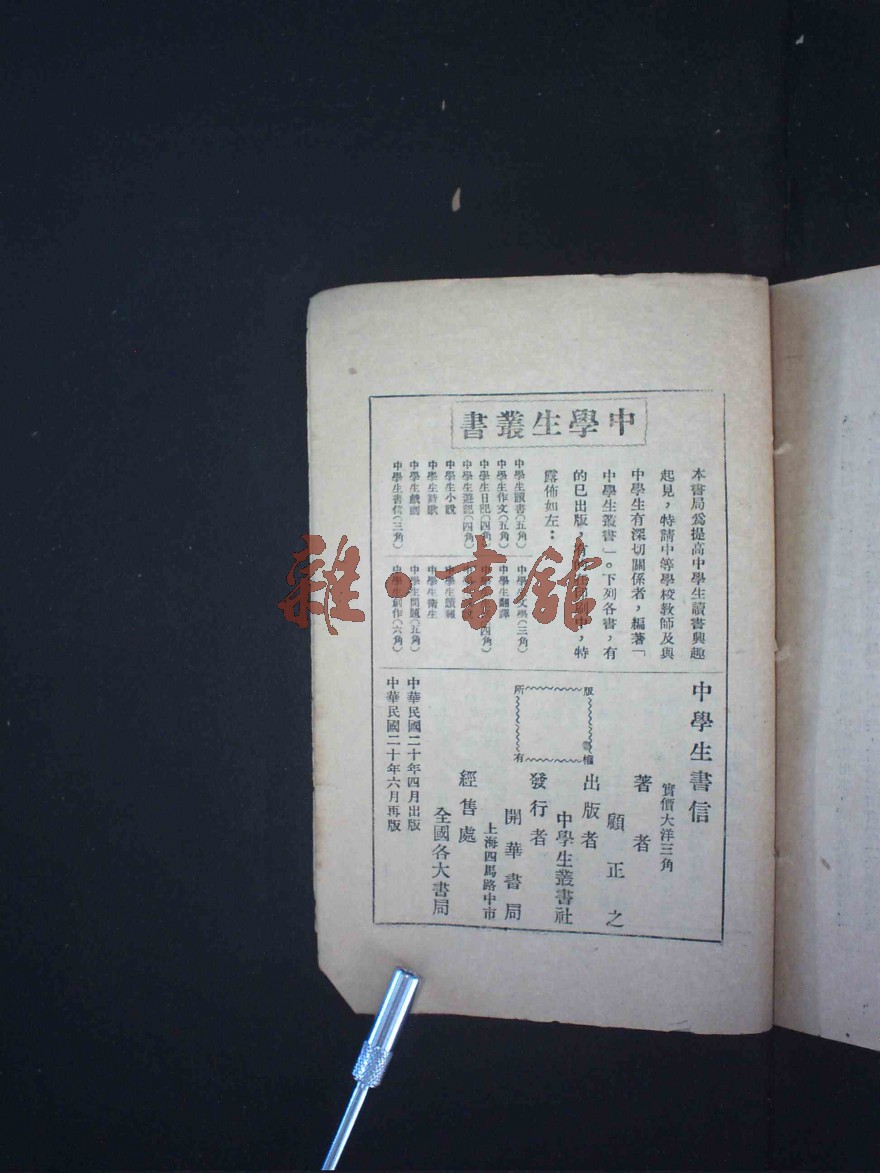 中學生叢書
本書局爲提高中學生讀書興趣
起見，特請中等學校教師及與
中學生有深切關係者，編著「
中學生叢書」。下列各書，有
的已出版，中，特
露佈如左：
中學生讀書（五角）
中學生作文（五角）
中學生日記（四角）
中學生遊記（四角）
中學生小說
中學生詩歌
中學生戲劇
中學生書信（三角）
中學文學（三角）
中學生翻譯
四角）
中學生衛生
中學生問題（五角）
中學生創作（六角）
中學生書信
實價大洋三角
著者
顧正之
出版者
中學生叢書社
發行者
開華書局
上海四馬路中市
經售處
全國各大書局
版權所有
中華民國二十年四月出版
中華民國二十年六月再版
雜·書館